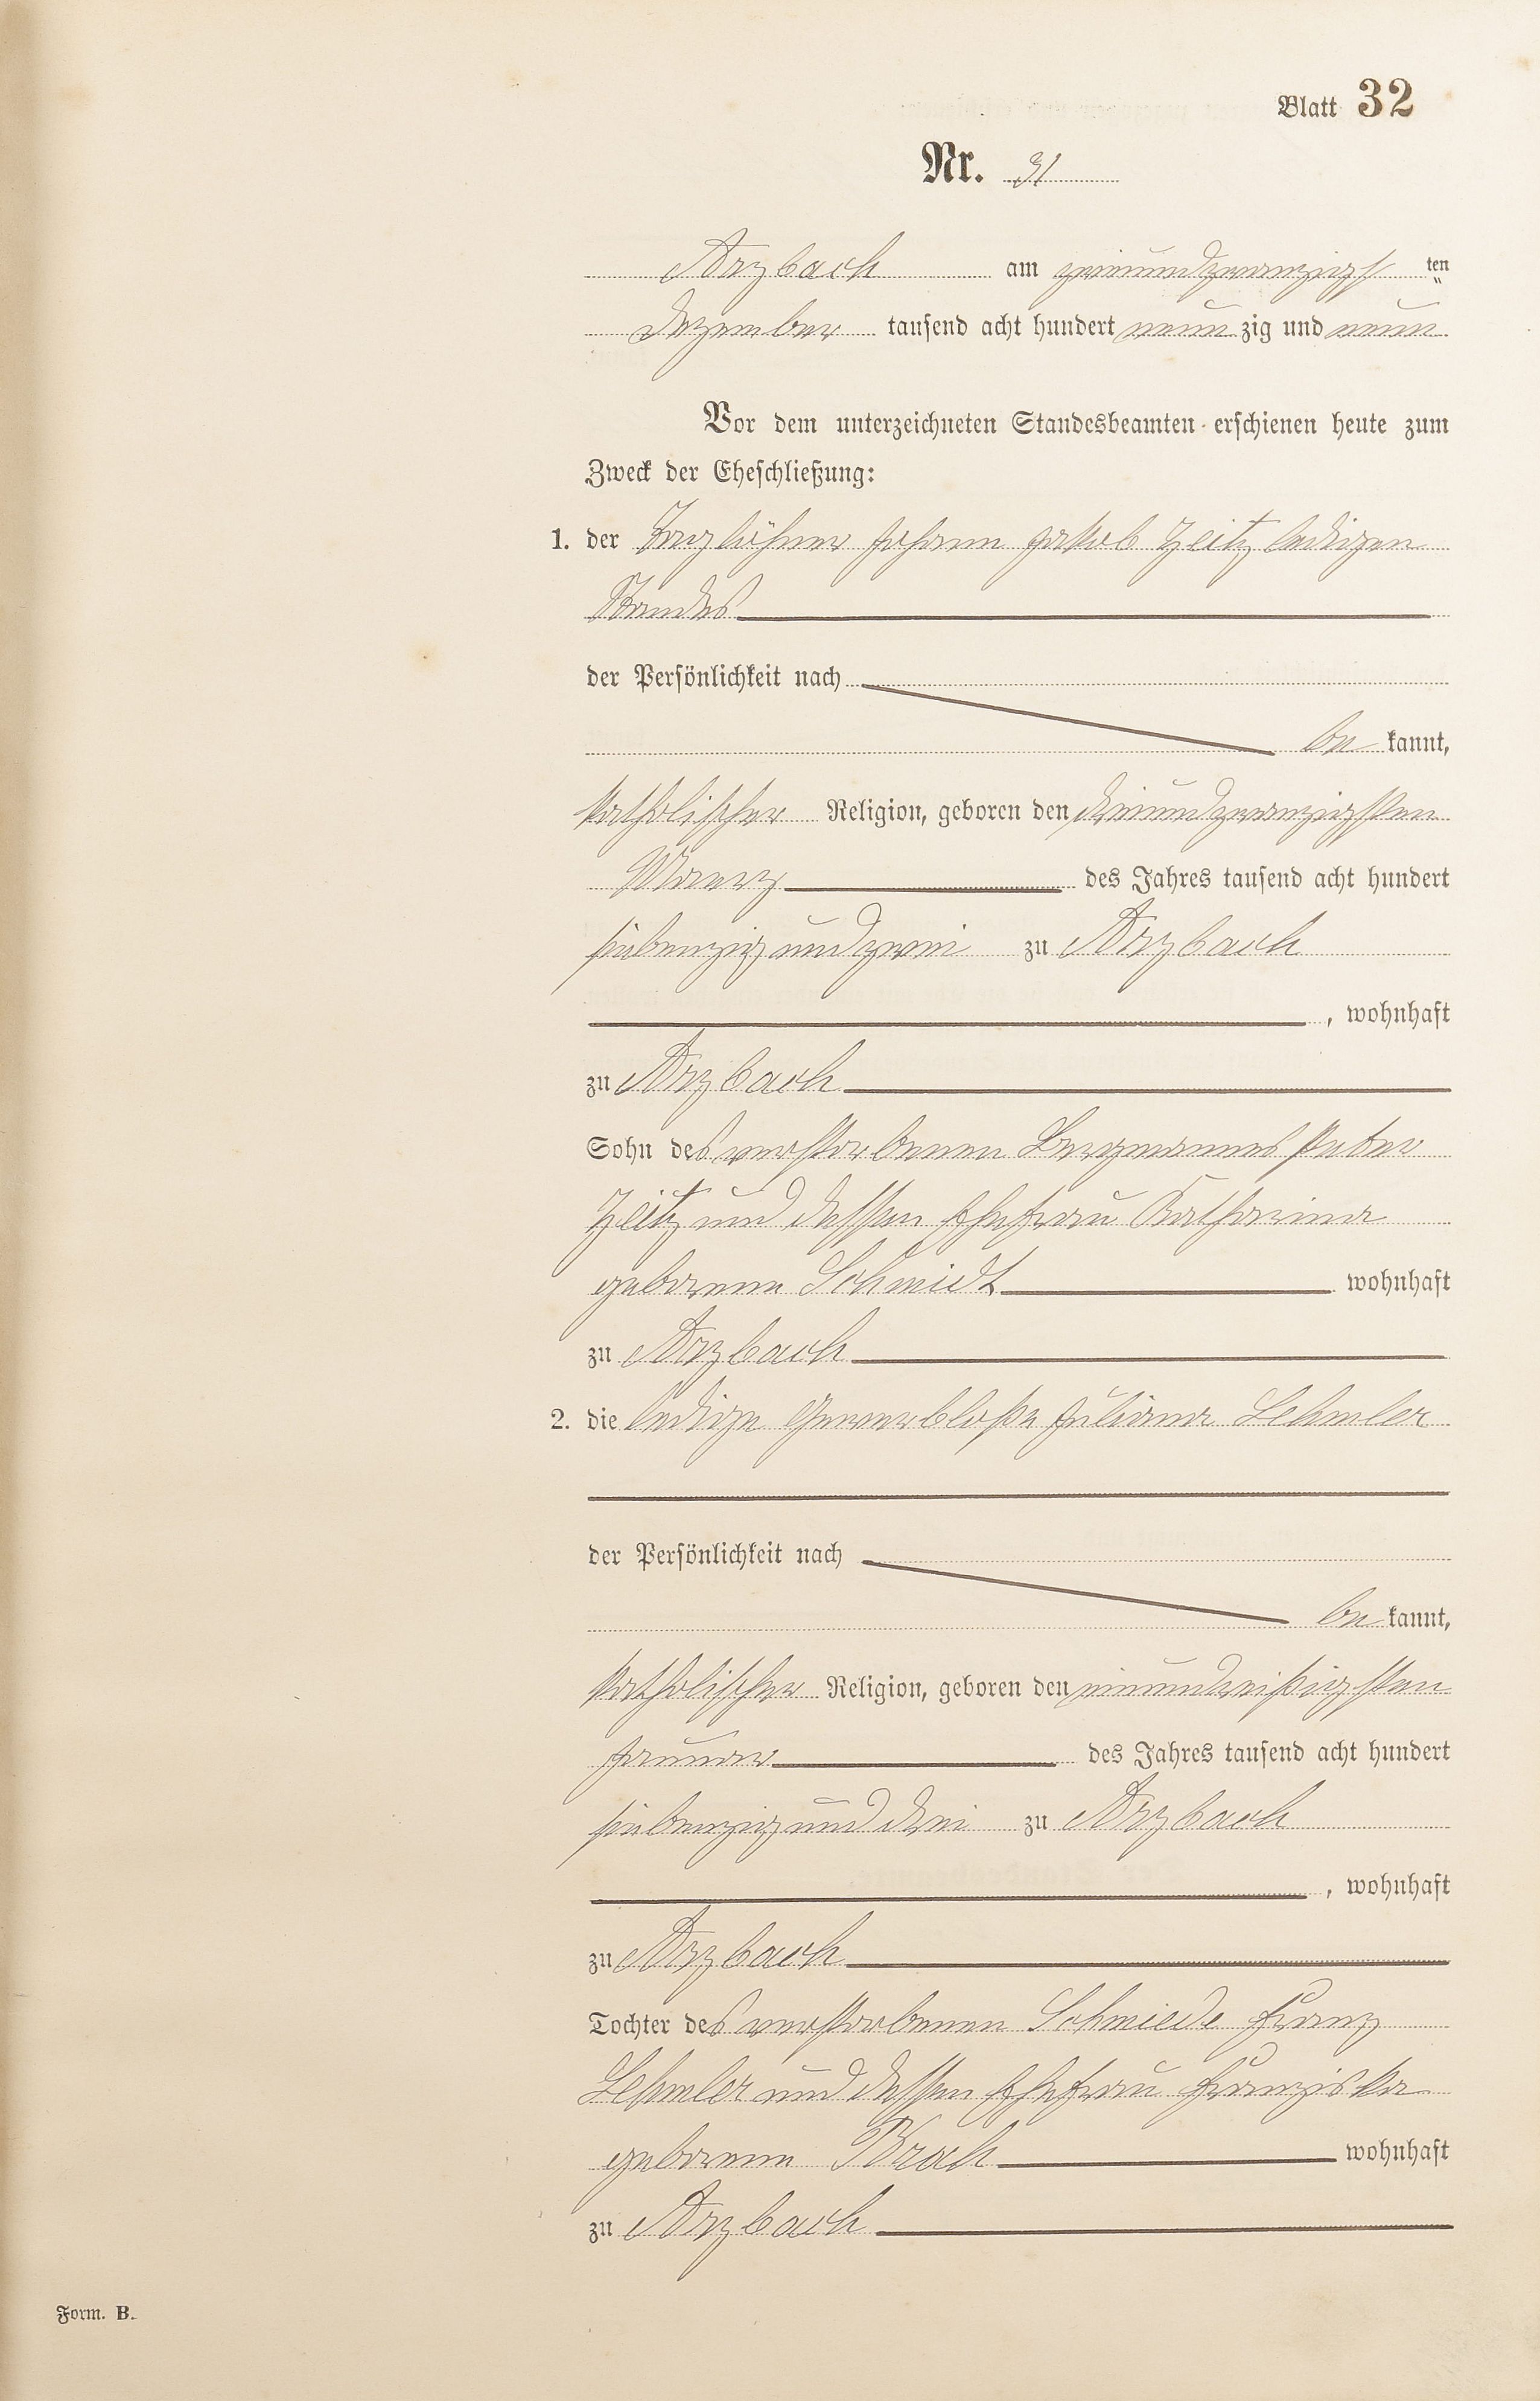 Blatt 32
Nr. 31
Arzbach am zweiundzwanzigst ten
Dezember tausend acht hundert neun zig und neun
Vor dem unterzeichneten Standesbeamten erschienen heute zum
Zweck der Eheschließung:
1. der Taglöhner Johann Jakob Zeitz ledigen
Standes
der Persönlichkeit nach
be kannt,
katholischer Religion, geboren den dreiundzwanzigsten
Maerz des Jahres tausend acht hundert
siebenzig und zwei zu Arzbach
, wohnhaft
zu Arzbach
Sohn des verstorbenen Bergmannes Peter
Zeitz und dessen Ehefrau Katharina
geborene Schmidt wohnhaft
zu Arzbach
2. die ledige Gewerblose Juliana Lehmler
der Persönlichkeit nach
be kannt,
katholischer Religion, geboren den einunddreißigsten
Januar des Jahres tausend acht hundert
siebenzig und drei zu Arzbach
, wohnhaft
zu Arzbach
Tochter des verstorbenen Schmiede Franz
Lehmler und dessen Ehefrau Franziska
geborene Brach wohnhaft
zu Arzbach
Form. B.